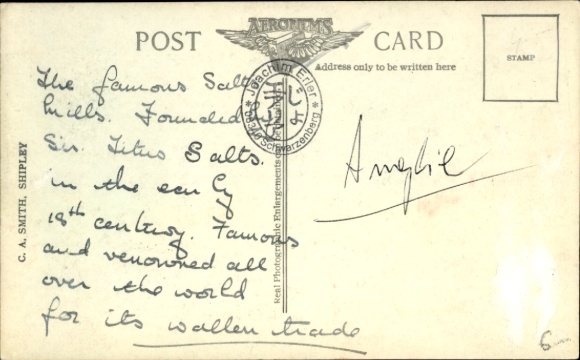 AEROFILMS
POST CARD
Address only to be written here
STAMP
The famous Salts
Mills. Founded by
Sir. Titus Salts.
in the early
18th century. Famous
and renowned all
over the world
for its wollen trade
C. A. SMITH, SHIPLEY
Real Photographic Enlargements
* Joachim Erler *
Schwarzenberg
6